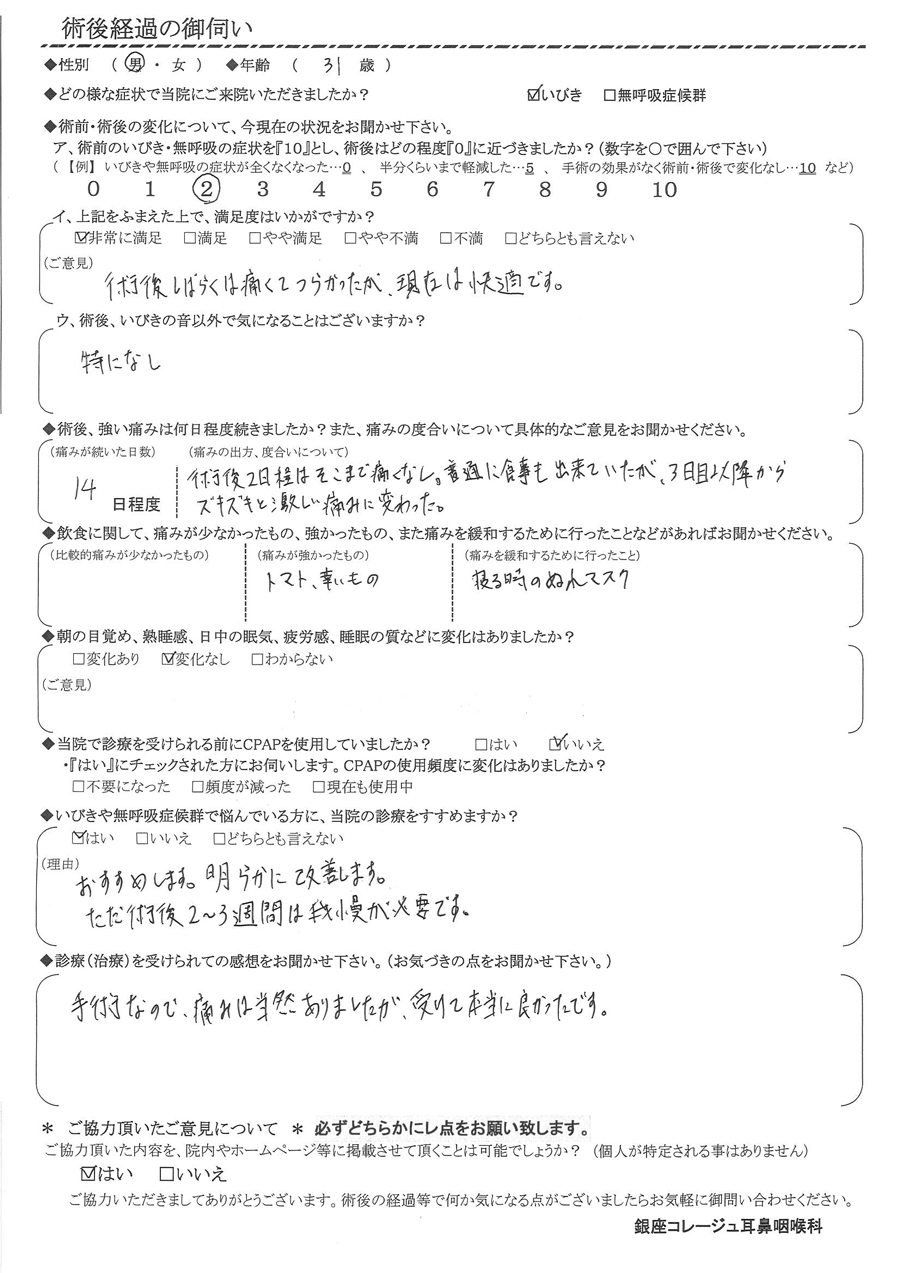 術後経過の御伺い
◆性別　（ 男 ・ 女 ）　◆年齢　（　31　歳 ）
◆どの様な症状で当院にご来院いただきましたか？　☑いびき　□無呼吸症候群
◆術前・術後の変化について、今現在の状況をお聞かせ下さい。
ア、術前のいびき・無呼吸の症状を『10』とし、術後はどの程度『0』に近づきましたか？（数字を〇で囲んで下さい）
（ 【例】 いびきや無呼吸の症状が全くなくなった…0 、 半分くらいまで軽減した…5 、 手術の効果がなく術前・術後で変化なし…10 など）
0　1　2　3　4　5　6　7　8　9　10
イ、上記をふまえた上で、満足度はいかがですか？
☑非常に満足　□満足　□やや満足　□やや不満　□不満　□どちらとも言えない
（ご意見）
術後しばらくは痛くてつらかったが、現在は快適です。
ウ、術後、いびきの音以外で気になることはございますか？
特になし
◆術後、強い痛みは何日程度続きましたか？また、痛みの度合いについて具体的なご意見をお聞かせください。
（痛みが続いた日数）　（痛みの出方、度合いについて）
14 日程度
術後2日程はそこまで痛くなし。普通に食事も出来ていたが、3日目以降から
ズキズキと激しい痛みに変わった。
◆飲食に関して、痛みが少なかったもの、強かったもの、また痛みを緩和するために行ったことなどがあればお聞かせください。
（比較的痛みが少なかったもの）　（痛みが強かったもの）　（痛みを緩和するために行ったこと）
トマト、辛いもの　寝る時のぬれマスク
◆朝の目覚め、熟睡感、日中の眠気、疲労感、睡眠の質などに変化はありましたか？
□変化あり　☑変化なし　□わからない
（ご意見）
◆当院で診療を受けられる前にCPAPを使用していましたか？　□はい　☑いいえ
・『はい』にチェックされた方にお伺いします。CPAPの使用頻度に変化はありましたか？
□不要になった　□頻度が減った　□現在も使用中
◆いびきや無呼吸症候群で悩んでいる方に、当院の診療をすすめますか？
☑はい　□いいえ　□どちらとも言えない
（理由）
おすすめします。明らかに改善します。
ただ術後2〜3週間は我慢が必要です。
◆診療（治療）を受けられての感想をお聞かせ下さい。（お気づきの点をお聞かせ下さい。）
手術なので、痛みは当然ありましたが、受けて本当に良かったです。
＊　ご協力頂いたご意見について　＊　必ずどちらかにレ点をお願い致します。
ご協力頂いた内容を、院内やホームページ等に掲載させて頂くことは可能でしょうか？　（個人が特定される事はありません）
☑はい　□いいえ
ご協力いただきましてありがとうございます。術後の経過等で何か気になる点がございましたらお気軽に御問い合わせください。
銀座コレージュ耳鼻咽喉科